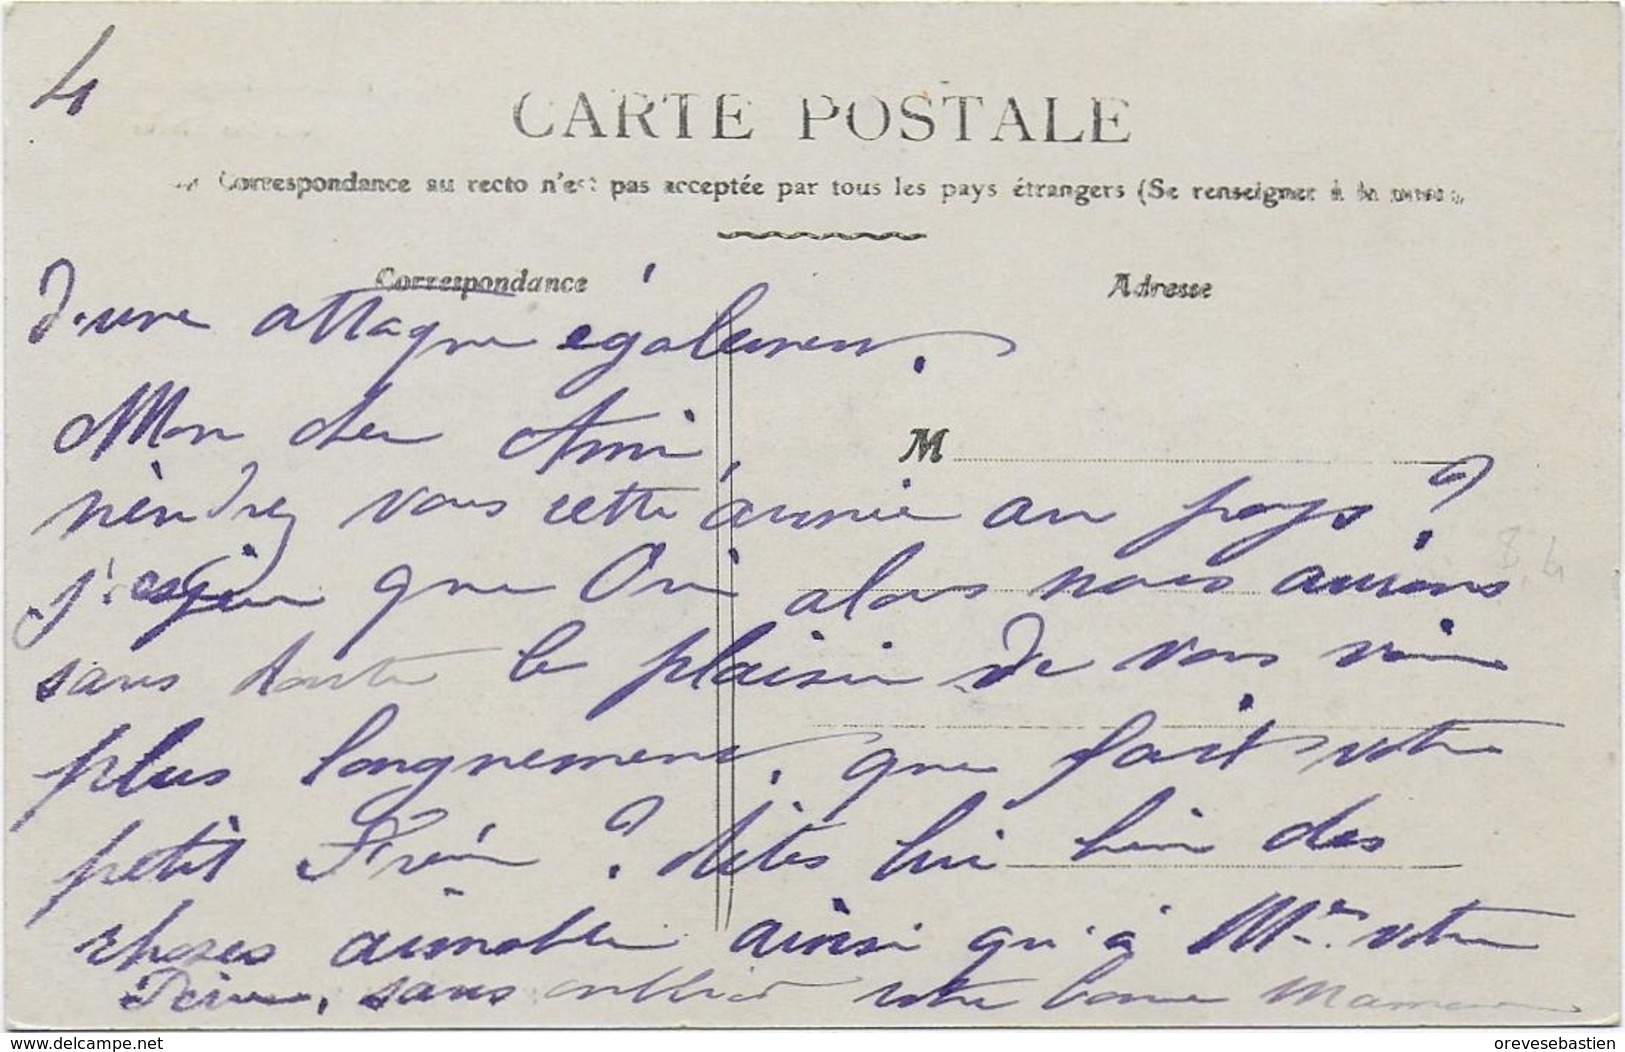 4
CARTE POSTALE
Correspondance au recto n'est pas acceptée par tous les pays étrangers (Se renseigner à la
Correspondance
Adresse
d'une attaque également.
Mon cher Ami,
M
viendrez vous cette année au pays ?
j'espère que Oui alors nous aurions
sans doute le plaisir de vous voir
plus longuement. que fait votre
petit Frère ? dites lui bien des
choses aimables ainsi qu'à Mr votre
Père, sans oublier votre bonne Maman
delcampe.net
orevesebastien